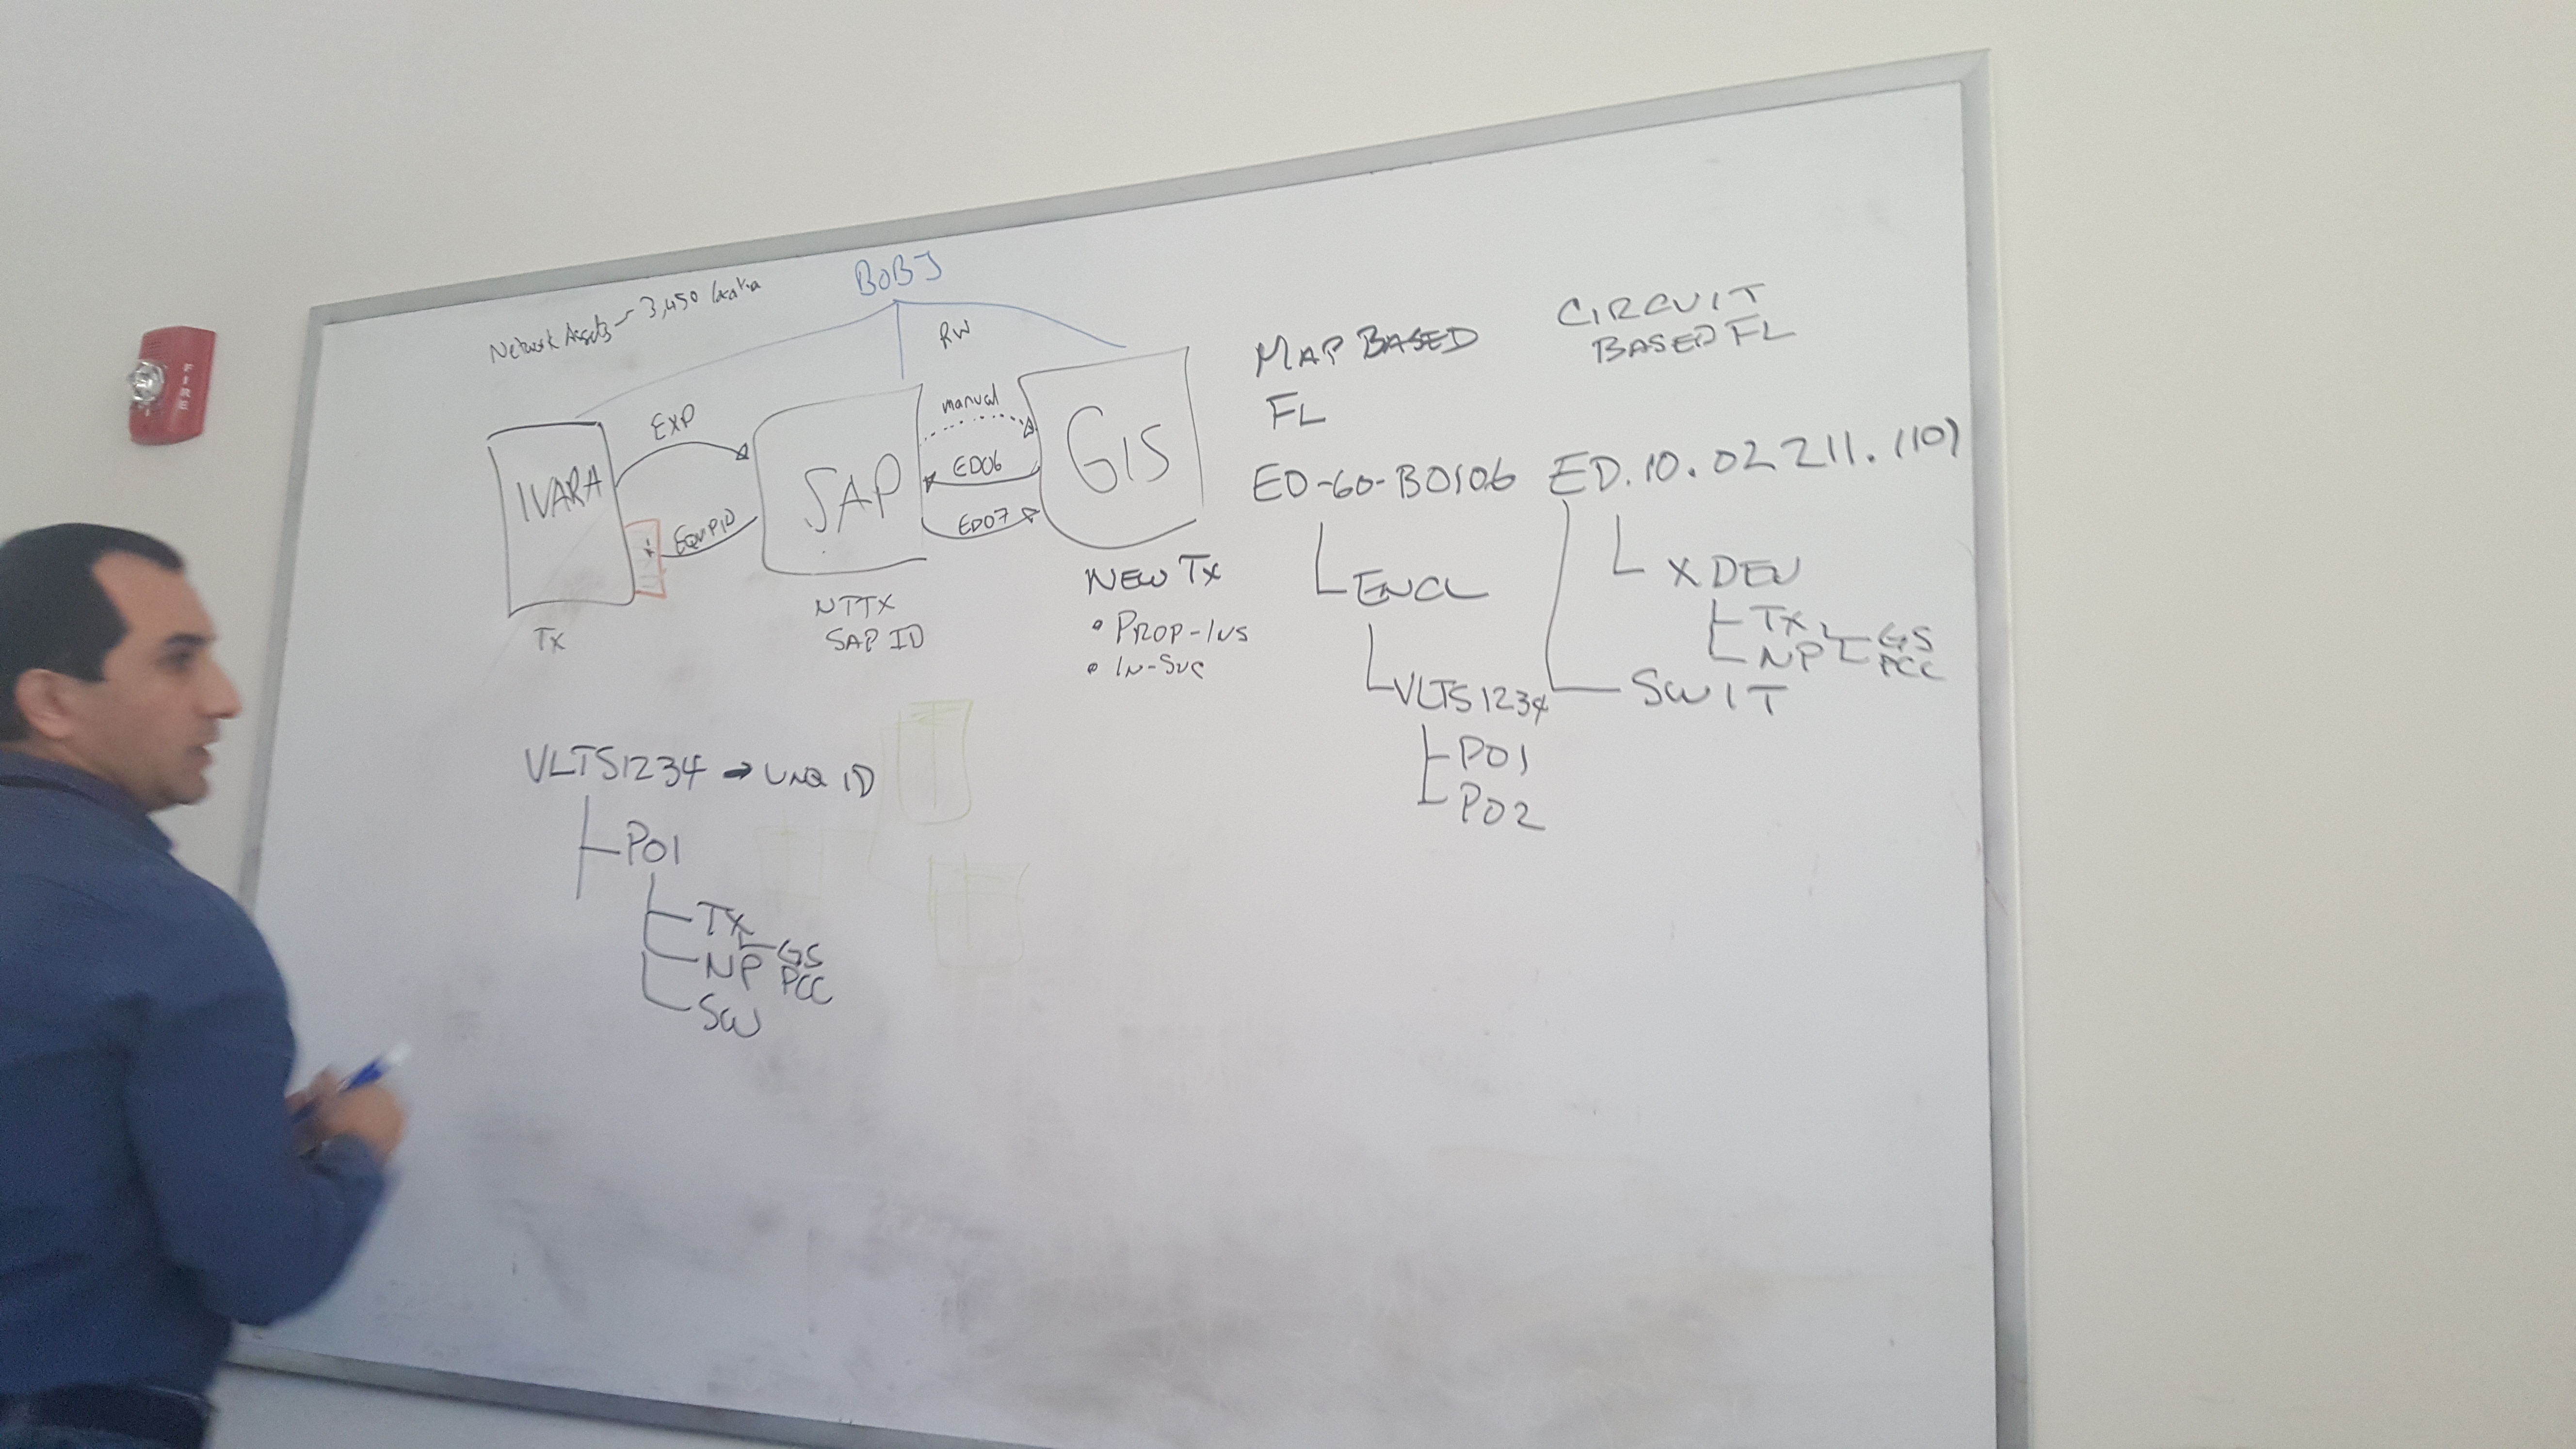 FIRE
BOBJ
Network Assets - 3,450
RW
IVARA
EXP
EQUPID
TX
SAP
NTTX
SAP ID
manual
ED06
ED07
GIS
NEW TX
• PROP-INS
• IN-SVC
MAP BASED
FL
ED-60-B0106
ENCL
VLTS1234
P01
P02
CIRCUIT
BASED FL
ED.10.02211.(10)
XDEV
TX
NP
GS
PCC
SWIT
VLTS1234 → UNQ ID
P01
TX
GS
NP
PCC
SW